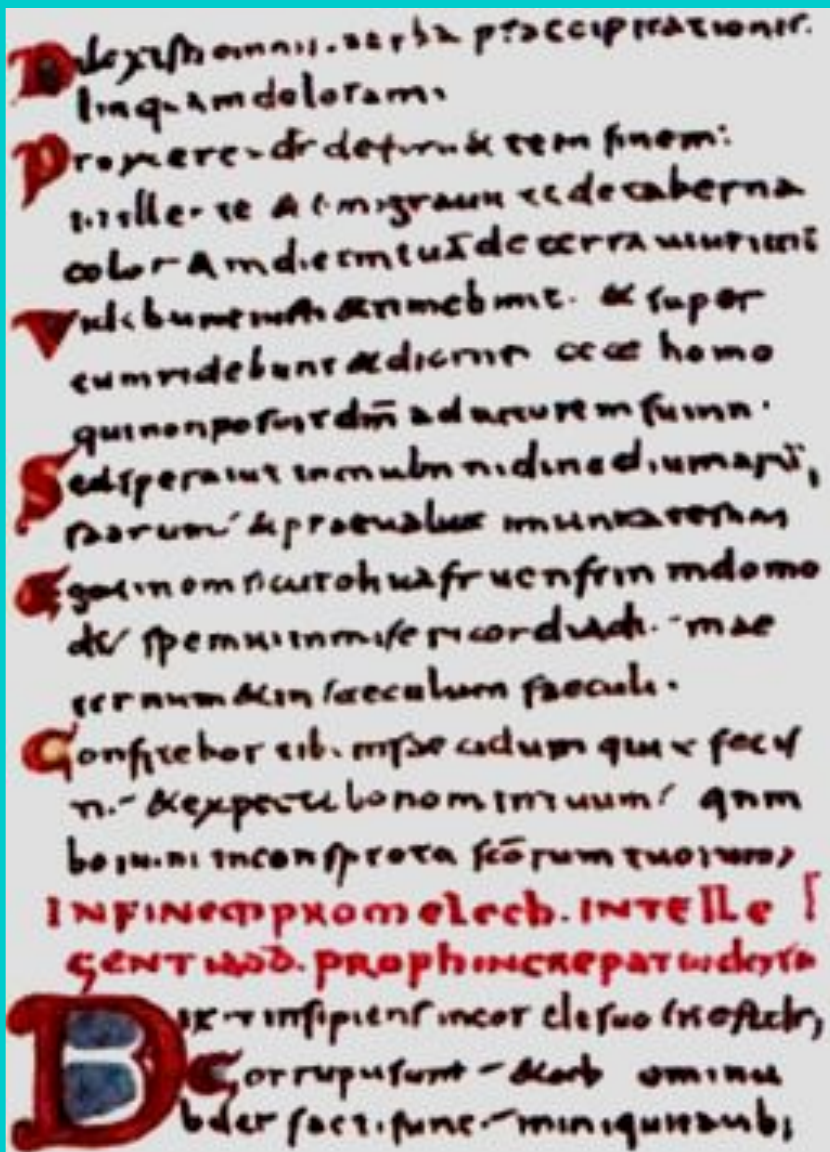 Dilexisti omnia uerba praecipitationis.
linguam dolosam.
Propterea dr destruet te in finem:
euellet te & emigrauit te de taberna
colo & radicem tuam de terra uiuentium
Videbunt iusti & timebunt. & super
eum ridebunt & dicent ecce homo
qui non posuit dm adiutorem suum.
Sed sperauit in multitudine diuitiarum,
suarum & praeualuit in uanitate sua
Ego in domo
di speraui in misericordia di. in ae
ternum & in saeculum saeculi.
Confitebor tibi in saeculum quia fecis
ti & expectabo nomen tuum qnm
bonum in conspectu scorum tuorum
INFINEM PRO melech. INTELLe
GENTIA DD. PROPH INCREPAT
Dixit insipiens in corde suo non est ds,
Corrupti sunt & abomina
biles facti sunt in iniquitatibus